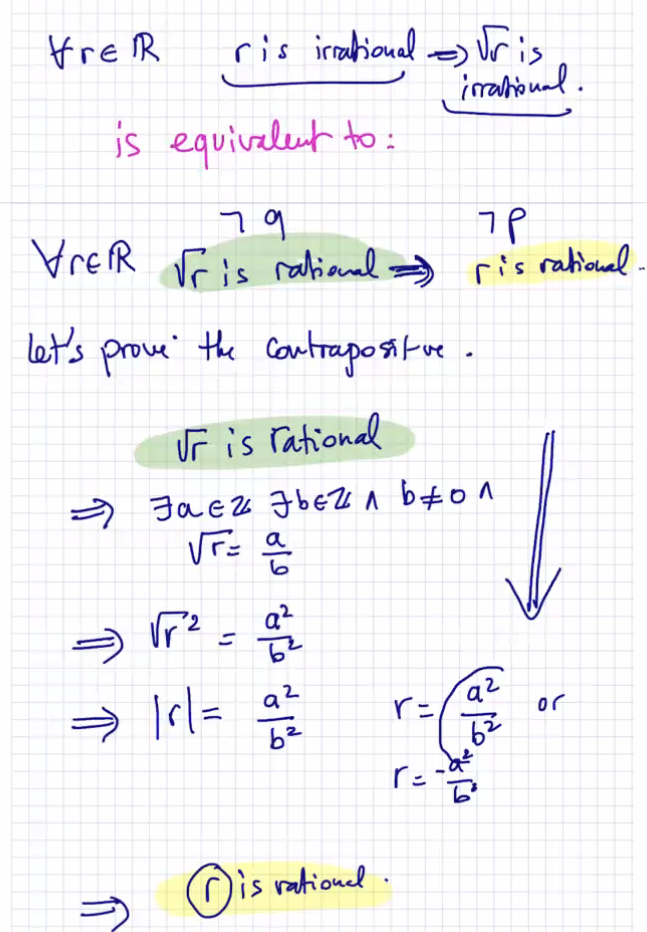 ∀r∈ℝ r is irrational ⇒ √r is
irrational.
is equivalent to:
¬q ¬p
∀r∈ℝ √r is rational ⇒ r is rational.
let's prove the contrapositive.
√r is rational
⇒ ∃a∈ℤ ∃b∈ℤ ∧ b≠0 ∧
√r = a/b
⇒ √r² = a²/b²
⇒ |r| = a²/b² r = a²/b² or
r = -a²/b²
⇒ r is rational.